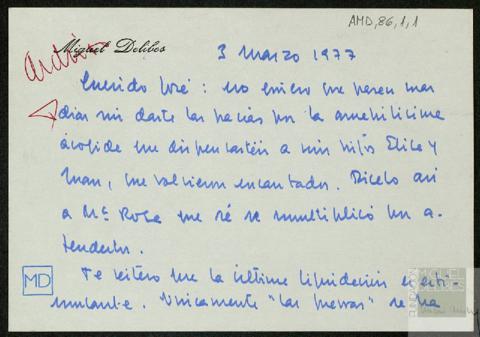 AMD,86,1,1
Miguel Delibes
3 Marzo 1977
Querido José: no quiero que pasen mas
dias sin darte las gracias por la amabilísima
acogida que dispensasteis a mis hijos Elisa y
Juan, que volvieron encantados. Díselo así
a Mª Rosa que sé se multiplicó por a-
tenderlos.
Te reitero que la última liquidación es esti-
MD
mulante. Unicamente "Las guerras" se ha